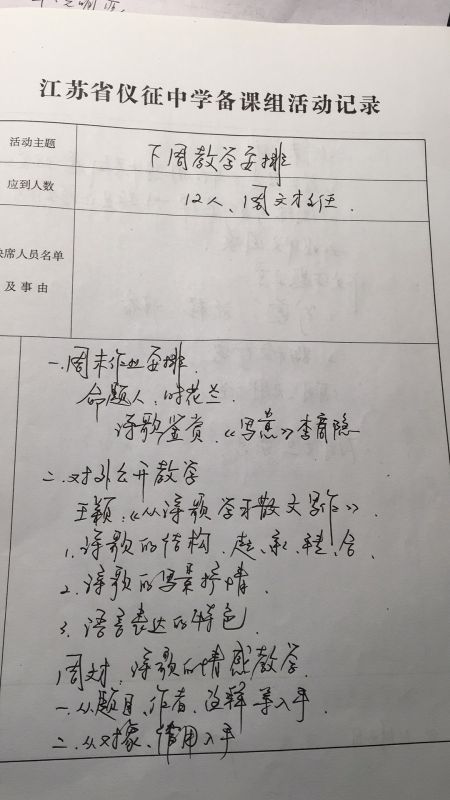 江苏省仪征中学备课组活动记录
活动主题 下周教学安排
应到人数 12人、周文材主任.
缺席人员名单
及事由
一.周末作业安排.
命题人.时花兰.
诗歌鉴赏.《写意》李商隐
二.对外公开教学
王颖.《从诗歌学习散文写作》.
1.诗歌的结构.起、承、转、合.
2.诗歌的写景抒情.
3.语言表达的特色.
周文材.诗歌的情感教学.
一.从题目、作者、注释等入手.
二.从对象、作用入手